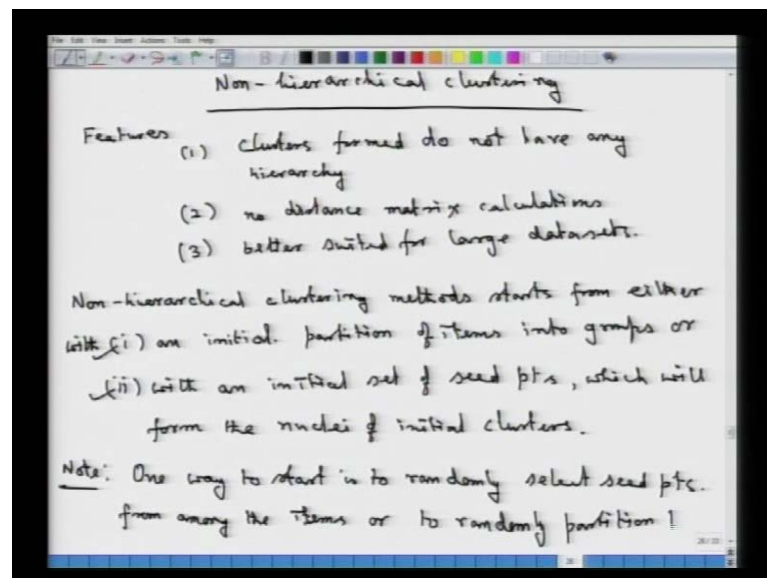 File Edit View Insert Actions Tools Help
Non-hierarchical clustering
Features
(1) clusters formed do not have any
hierarchy
(2) no distance matrix calculations
(3) better suited for large datasets.
Non-hierarchical clustering methods starts from either
with (i) an initial partition of items into groups or
(ii) with an initial set of seed pts, which will
form the nuclei of initial clusters.
Note: One way to start is to randomly select seed pts.
from among the items or to randomly partition